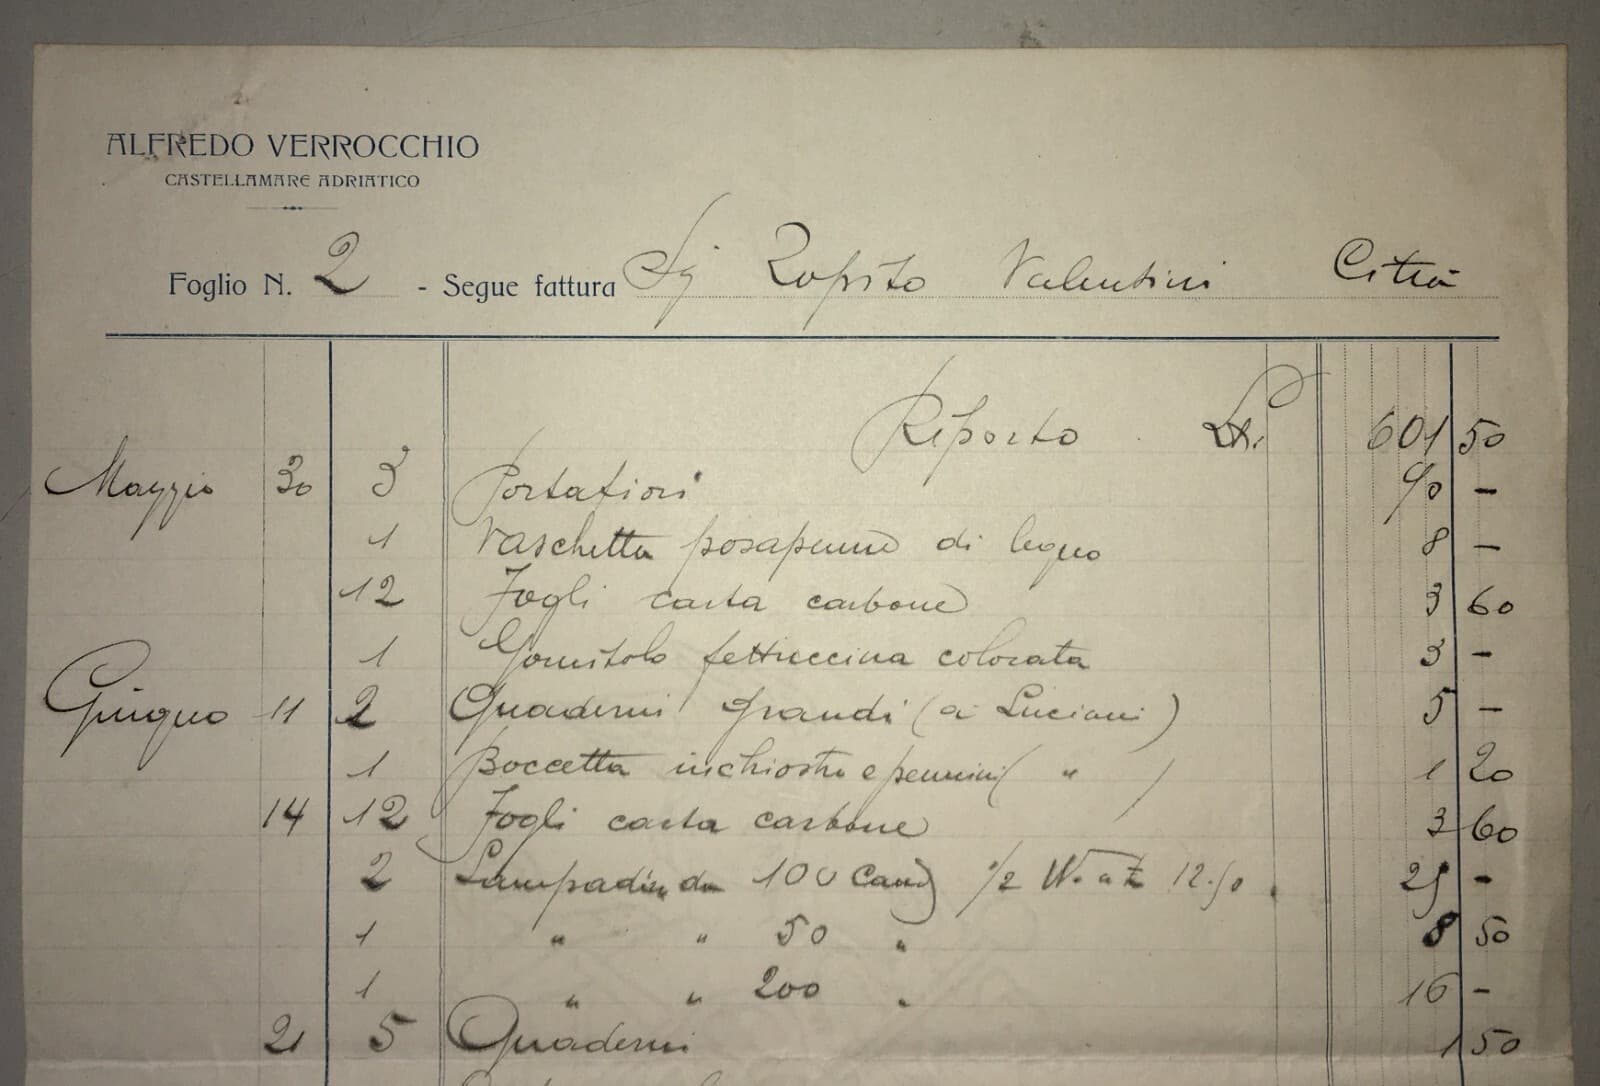 ALFREDO VERROCCHIO
CASTELLAMARE ADRIATICO
Foglio N. 2 - Segue fattura Sig Zopito Valentini Città
Riporto Lit. 601 50
Maggio 30 3 Portafiori 90 —
1 Vaschetta posapenne di legno 8 —
12 Fogli carta carbone 3 60
1 Gomitolo fettuccina colorata 3 —
Giugno 11 2 Quaderni grandi (a Luciani) 5 —
1 Boccetta inchiostro e pennini ( " ) 1 20
14 12 Fogli carta carbone 3 60
2 Lampadine da 100 Cand 1/2 Watt 12.50 25 —
1 " " 50 " 8 50
1 " " 200 " 16 —
21 5 Quaderni 1 50